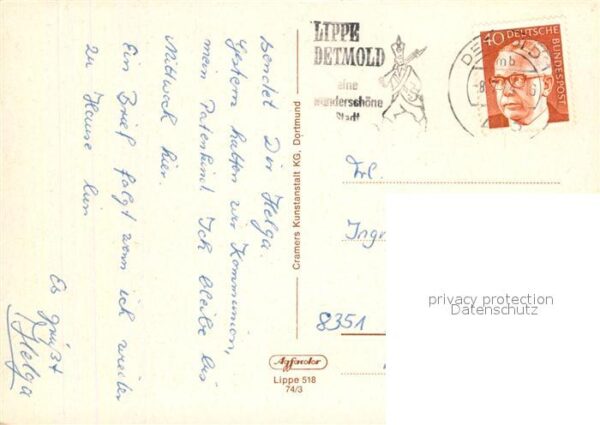 sendet Dir Helga.
Gestern hatten wir Kommunion,
mein Patenkind. Ich bleibe bis
Mittwoch hier.
Ein Brief folgt wenn ich weiter
zu Hause bin
Es grüßt
Helga
Cramers Kunstanstalt KG, Dortmund
Agfacolor
Lippe 518
74/3
LIPPE
DETMOLD
eine
wunderschöne
Stadt
40 DEUTSCHE
BUNDESPOST
DETMOLD 1
mb
-8.
Frl.
Ingr
8351
privacy protection
Datenschutz